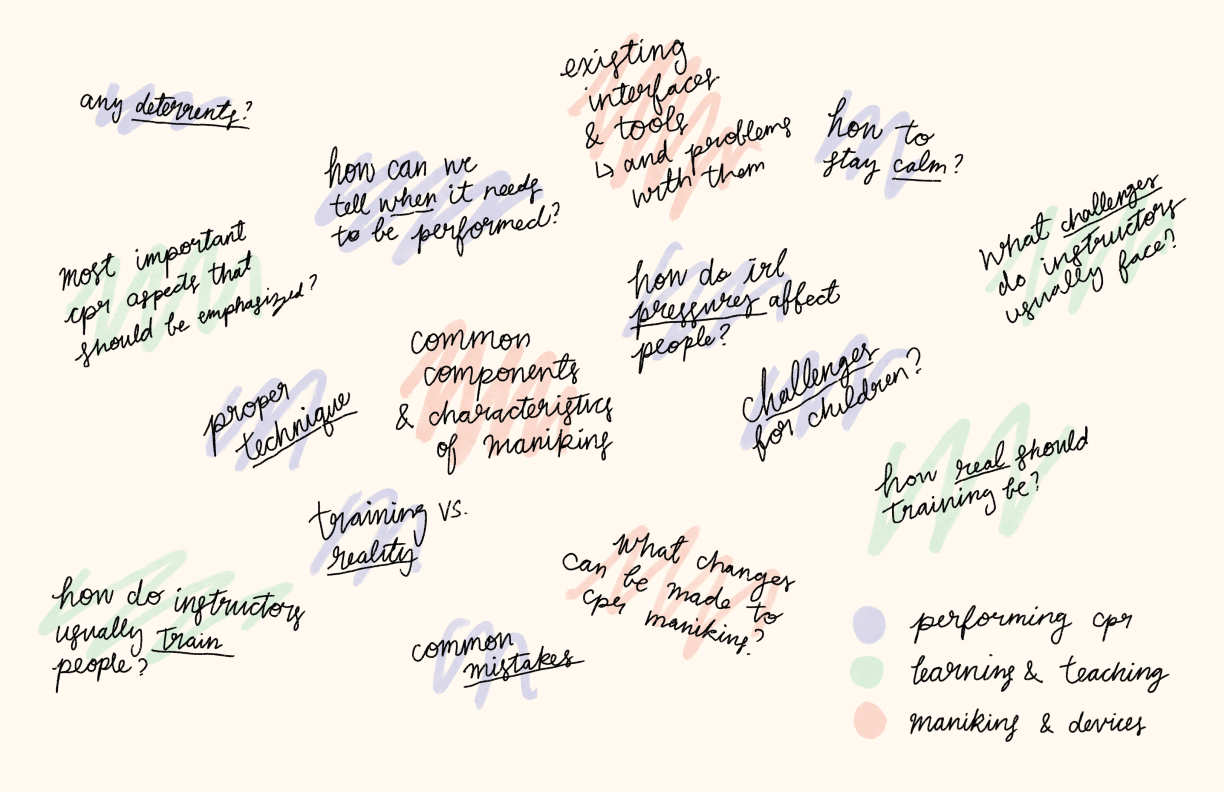 any deterrents?
existing
interfaces
& tools
↳ and problems
with them
how to
stay calm?
how can we
tell when it needs
to be performed?
What challenges
do instructors
usually face?
most important
cpr aspects that
should be emphasized?
how do irl
pressures affect
people?
common
components
& characteristics
of manikins
challenges
for children?
proper
technique
how real should
training be?
training vs.
reality
What changes
can be made to
cpr manikins?
how do instructors
usually train
people?
common
mistakes
performing cpr
learning & teaching
manikins & devices